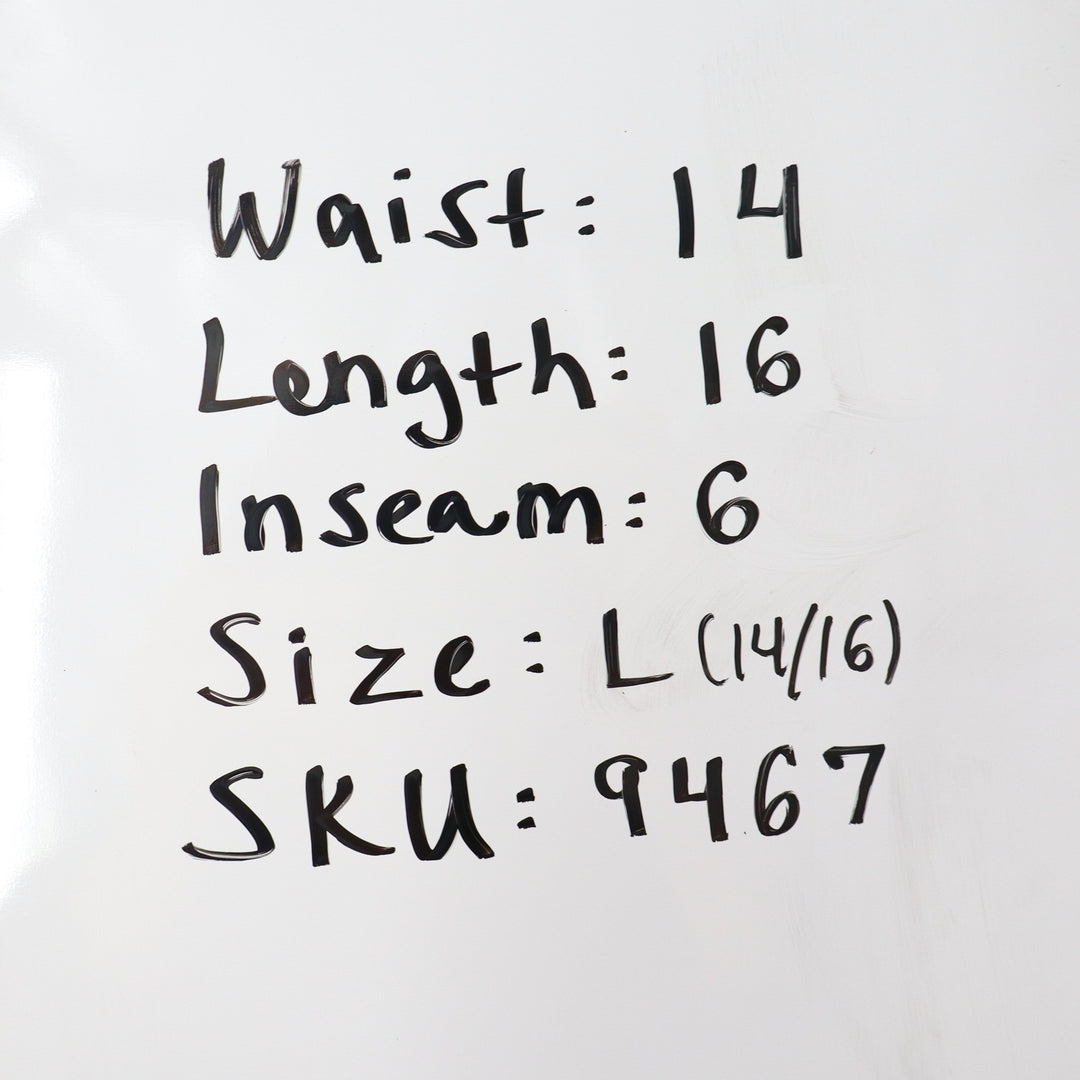 Waist: 14
Length: 16
Inseam: 6
Size: L (14/16)
SKU: 9467